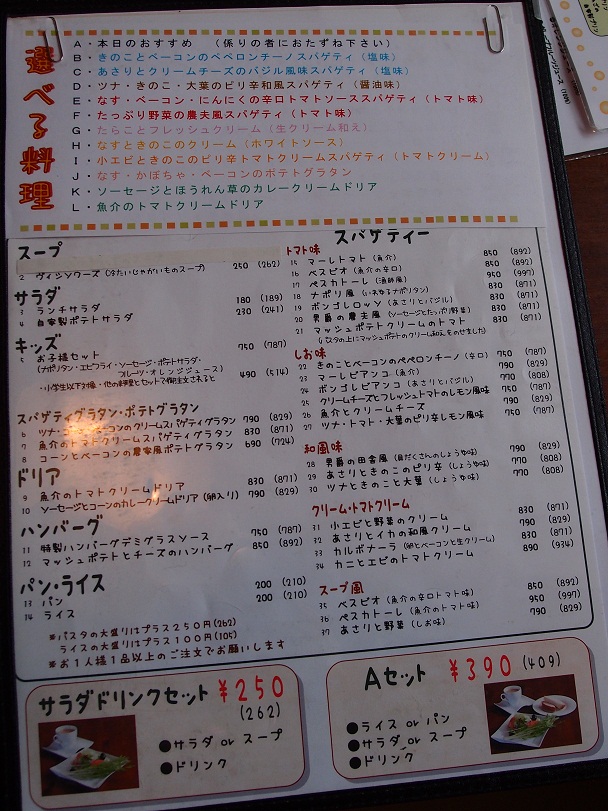 選べる料理
A・本日のおすすめ (係りの者におたずね下さい)
B・きのことベーコンのペペロンチーノスパゲティ(塩味)
C・あさりとクリームチーズのバジル風味スパゲティ(塩味)
D・ツナ・きのこ・大葉のピリ辛和風スパゲティ(醤油味)
E・なす・ベーコン・にんにくの辛口トマトソーススパゲティ(トマト味)
F・たっぷり野菜の農夫風スパゲティ(トマト味)
G・たらことフレッシュクリーム(生クリーム和え)
H・なすときのこのクリーム(ホワイトソース)
I・小エビときのこのピリ辛トマトクリームスパゲティ(トマトクリーム)
J・なす・かぼちゃ・ベーコンのポテトグラタン
K・ソーセージとほうれん草のカレークリームドリア
L・魚介のトマトクリームドリア
スープ
2 ヴィシソワーズ(冷たいじゃがいものスープ) 250 (262)
サラダ
3 ランチサラダ 180 (189)
4 自家製ポテトサラダ 230 (241)
キッズ
5 お子様セット 750 (787)
(ナポリタン・エビフライ・ソーセージ・ポテトサラダ・
フルーツ・オレンジジュース)
・小学生以下対象・他の料理とセットで御注文されると 490 (514)
スパゲティグラタン・ポテトグラタン
6 ツナ・コーンのクリームスパゲティグラタン 790 (829)
7 魚介のトマトクリームスパゲティグラタン 830 (871)
8 コーンとベーコンの農家風ポテトグラタン 690 (724)
ドリア
9 魚介のトマトクリームドリア 830 (871)
10 ソーセージとコーンのカレークリームドリア(卵入り) 790 (829)
ハンバーグ
11 特製ハンバーグデミグラスソース 750 (787)
12 マッシュポテトとチーズのハンバーグ 850 (892)
パン・ライス
13 パン 200 (210)
14 ライス 200 (210)
※パスタの大盛りはプラス250円(262)
ライスの大盛りはプラス100円(105)
※お1人様1品以上のご注文でお願いします
スパゲティー
トマト味
15 マーレトマト(魚介) 850 (892)
16 ベスビオ(魚介の辛口) 850 (892)
17 ペスカトーレ(漁師風) 950 (997)
18 ナポリ風(いわゆるナポリタン) 830 (871)
19 ボンゴレロッソ(あさりとバジル) 830 (871)
20 男爵の農夫風(ソーセージとたっぷり野菜) 830 (871)
21 マッシュポテトクリームのトマト 830 (871)
(パスタの上にマッシュポテトのクリーム和えをのせました)
しお味
22 きのことベーコンのペペロンチーノ(辛口) 750 (787)
23 マーレビアンコ(魚介) 770 (808)
24 ボンゴレビアンコ(あさりとバジル) 790 (829)
25 クリームチーズとフレッシュトマトのレモン風味 750 (787)
26 魚介とクリームチーズ 790 (829)
27 ツナ・トマト・大葉のピリ辛レモン風味 750 (787)
和風味
28 男爵の田舎風(具だくさんのしょうゆ味) 790 (829)
29 あさりときのこのピリ辛(しょうゆ味) 770 (808)
30 ツナときのこと大葉(しょうゆ味) 770 (808)
クリーム・トマトクリーム
31 小エビと野菜のクリーム 830 (871)
32 あさりとイカの和風クリーム 790 (829)
33 カルボナーラ(卵とベーコンと生クリーム) 830 (871)
34 カニとエビのトマトクリーム 890 (934)
スープ風
35 ベスビオ(魚介の辛口トマト味) 850 (892)
36 ペスカトーレ(魚介のトマト味) 950 (997)
37 あさりと野菜(しお味) 790 (829)
サラダドリンクセット ¥250
(262)
●サラダ or スープ
●ドリンク
Aセット ¥390 (409)
●ライス or パン
●サラダ or スープ
●ドリンク